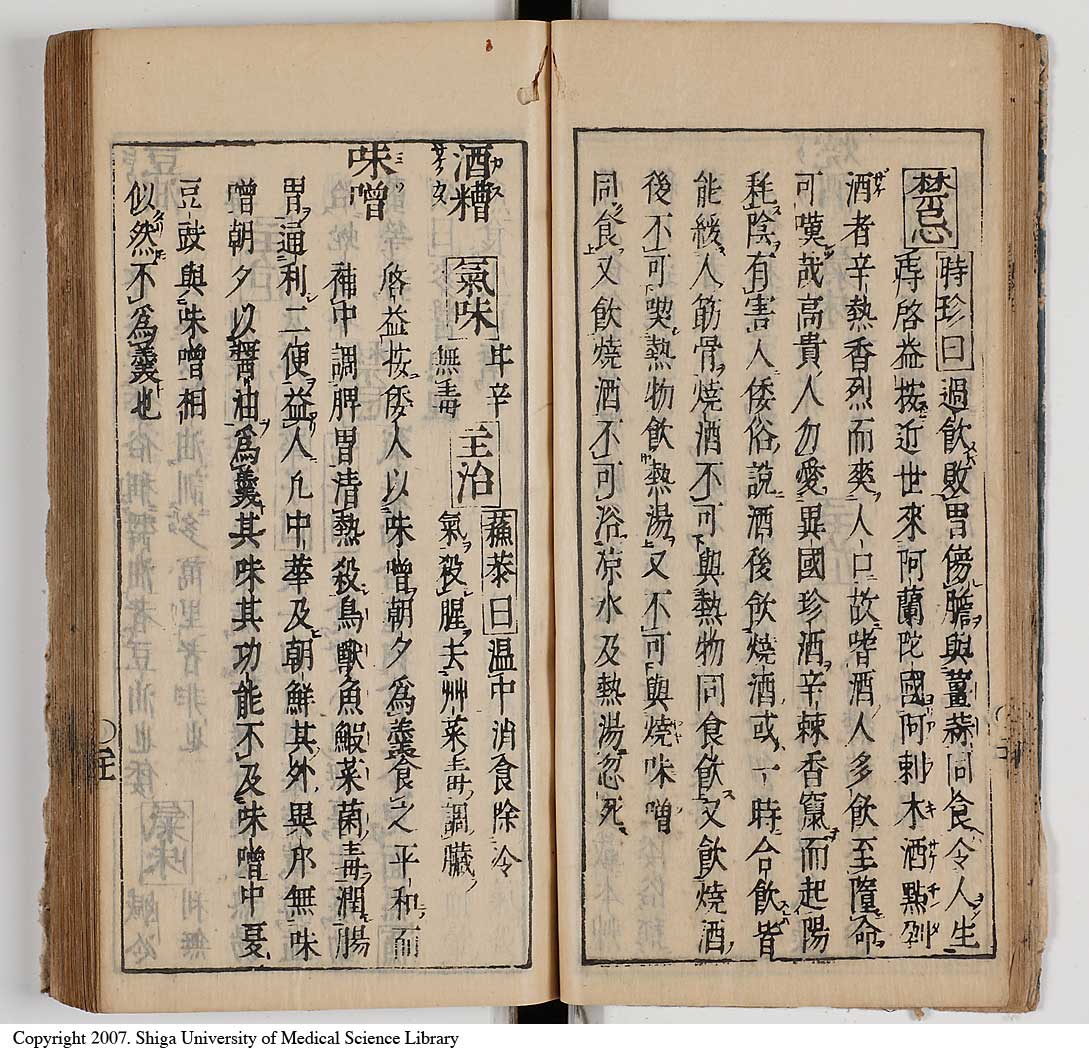 禁忌 時珍曰過飲敗胃傷膽與薑蒜同食令人生
痔啓益按近世來阿蘭陀國阿剌木酒點
酒者辛熱香烈而爽人口故嗜酒人多飲至隕命
可嘆哉高貴人勿愛異國珍酒辛棘香竄而起陽
耗陰有害人倭俗說酒後飲燒酒或一時合飲皆
能緩人筋骨燒酒不可與熱物同食飲又飲燒酒
後不可喫熱物飲熱湯又不可與燒味噌
同食又飲燒酒不可浴凉水及熱湯忽死
酒糟 氣味 甘辛無毒 主治 蘓恭曰温中消食除冷
氣殺腥去艸菜毒調臟
味噌 啓益按倭人以味噌朝夕爲羹食之平和而
補中調脾胃清熱殺鳥獸魚鰕菜菌毒潤腸
胃通利二便益人凢中華及朝鮮其外異邦無味
噌朝夕以醬油爲羹其味其功能不及味噌中夏
豆豉與味噌相
似然不爲羹也
Copyright 2007. Shiga University of Medical Science Library